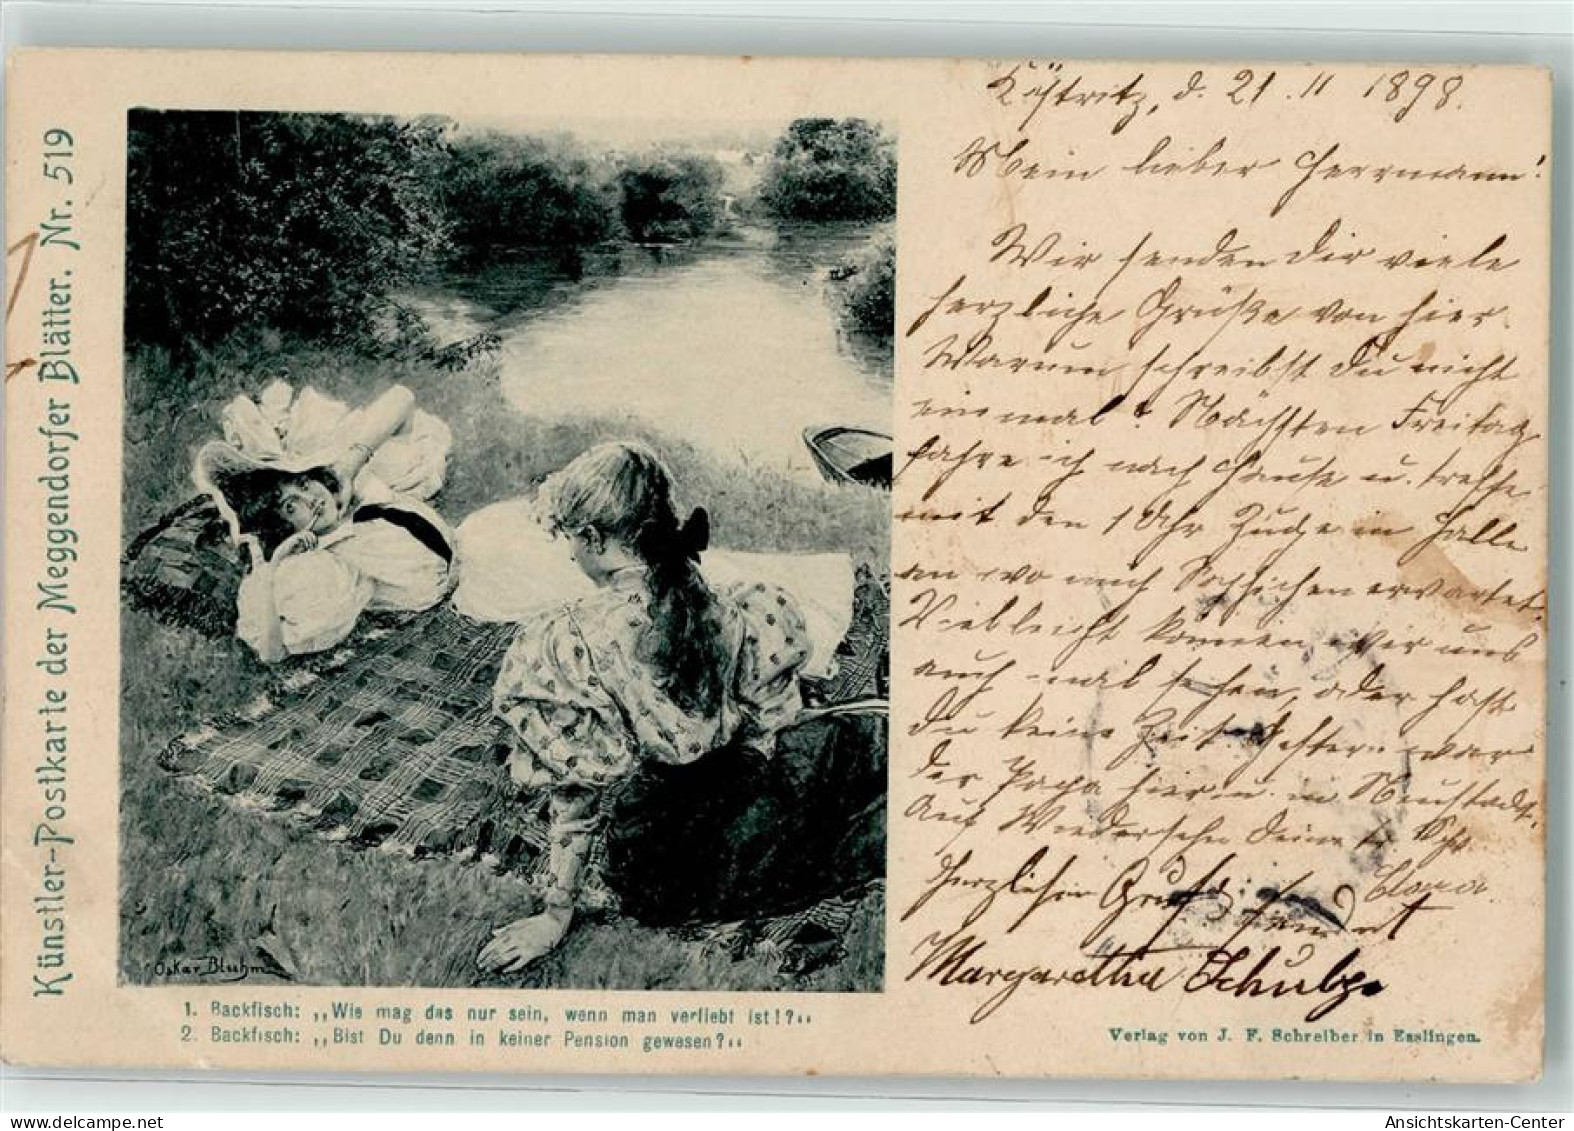 Künstler-Postkarte der Meggendorfer Blätter. Nr. 519
Köstritz, d. 21. 11 1898.
Mein lieber Herrmann!
Wir senden Dir viele
herzliche Grüße von hier.
Warum schreibst Du nicht
einmal? Nächsten Freitag
fahre ich nach Hause u. treffe
mit den 1 Uhr Zuge in Halle
an wo mich erwartet.
Vielleicht können wir uns
auch mal sehen, oder hast
Du keine Zeit. Gestern war
der Papa hier u. in Neustadt.
Auf Wiedersehn Deine
Herzlichen Gruß
Margarethe Schulze
Oskar Bluhm
1. Backfisch: „Wie mag das nur sein, wenn man verliebt ist!?„
2. Backfisch: „Bist Du denn in keiner Pension gewesen?„
Verlag von J. F. Schreiber in Esslingen.
Ansichtskarten-Center
www.ansichtskarten-center.de